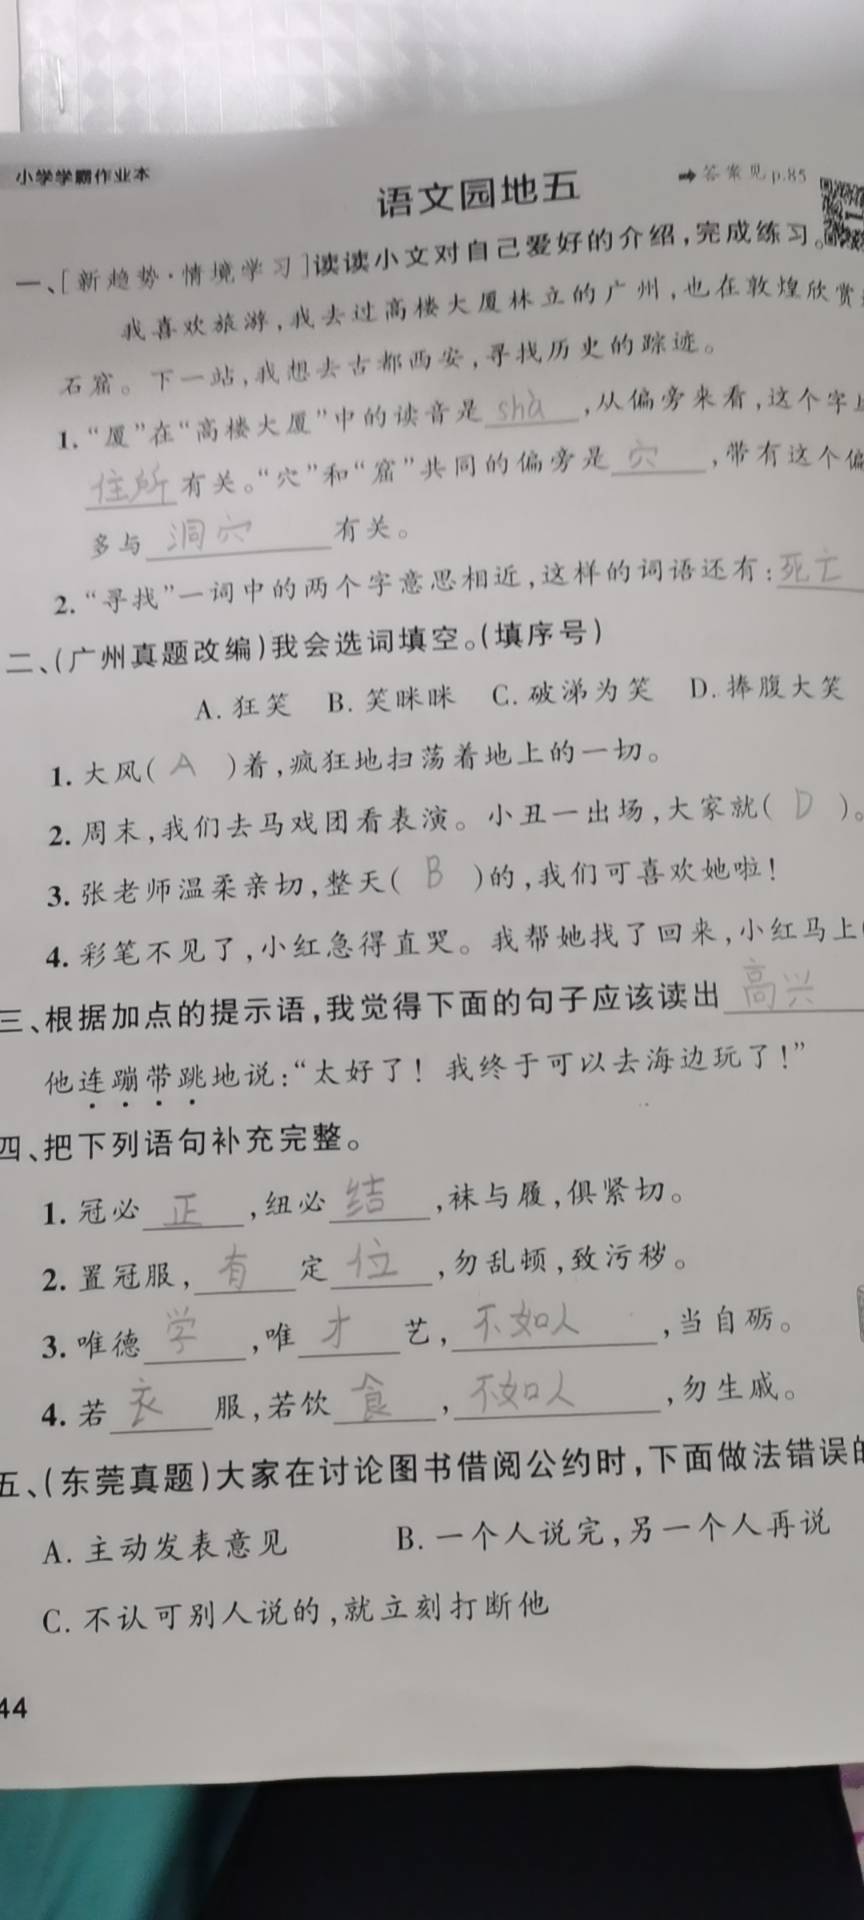 小学学霸作业本
语文园地五
➡答案见p.85
一、[新趋势·情境学习]读读小文对自己爱好的介绍,完成练习。
我喜欢旅游,我去过高楼大厦林立的广州,也在敦煌欣赏
石窟。下一站,我想去古都西安,寻找历史的踪迹。
1.“厦”在“高楼大厦”中的读音是 shà ,从偏旁来看,这个字
住所 有关。“穴”和“窟”共同的偏旁是 穴 ,带有这个偏
多与 洞穴 有关。
2.“寻找”一词中的两个字意思相近,这样的词语还有: 死亡
二、(广州真题改编)我会选词填空。(填序号)
A.狂笑 B.笑眯眯 C.破涕为笑 D.捧腹大笑
1.大风( A )着,疯狂地扫荡着地上的一切。
2.周末,我们去马戏团看表演。小丑一出场,大家就( D )。
3.张老师温柔亲切,整天( B )的,我们可喜欢她啦!
4.彩笔不见了,小红急得直哭。我帮她找了回来,小红马上(
三、根据加点的提示语,我觉得下面的句子应该读出 高兴
他连蹦带跳地说:“太好了!我终于可以去海边玩了!”
四、把下列语句补充完整。
1.冠必 正 ,纽必 结 ,袜与履,俱紧切。
2.置冠服, 有 定 位 ,勿乱顿,致污秽。
3.唯德 学 ,唯 才 艺, 不如人 ,当自砺。
4.若 衣 服,若饮 食 , 不如人 ,勿生戚。
五、(东莞真题)大家在讨论图书借阅公约时,下面做法错误的
A.主动发表意见 B.一个人说完,另一个人再说
C.不认可别人说的,就立刻打断他
44